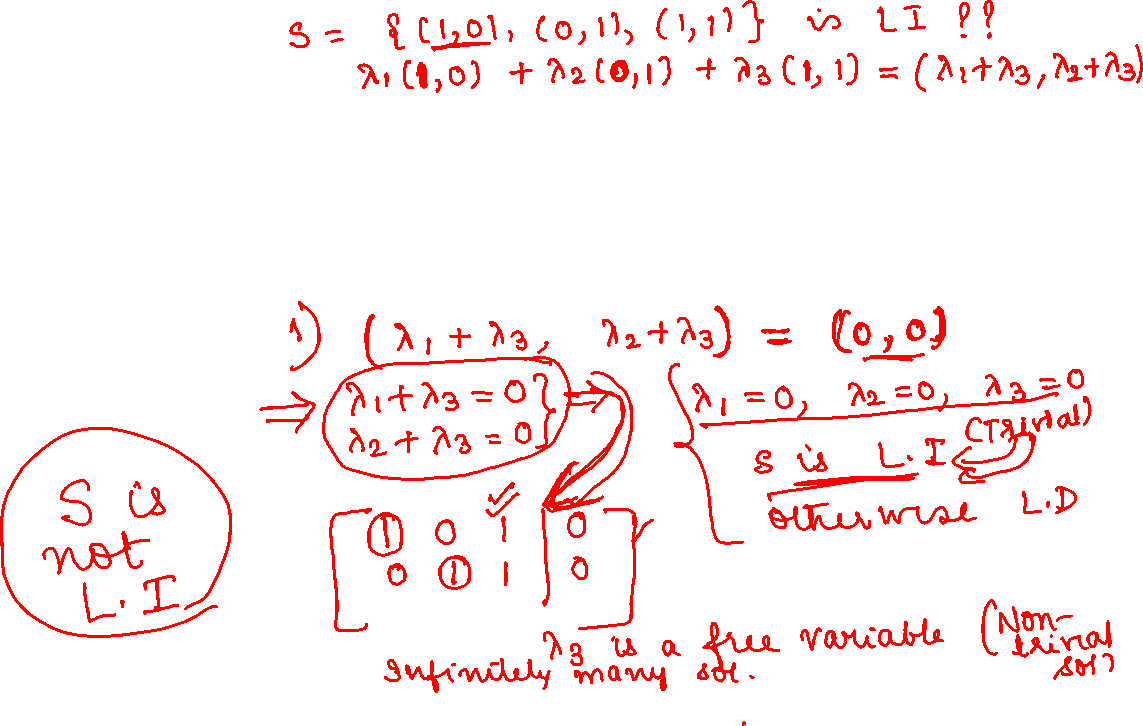 S = { (1,0), (0,1), (1,1) } is LI ??
λ1(1,0) + λ2(0,1) + λ3(1,1) = (λ1+λ3, λ2+λ3)
1) (λ1 + λ3, λ2+λ3) = (0,0)
⇒ λ1+λ3=0 } ⇒ { λ1=0, λ2=0, λ3=0
λ2+λ3=0 (Trivial)
S is L.I
otherwise L.D
S is
not
L.I
[ 1 0 1 | 0 ]
[ 0 1 1 | 0 ]
λ3 is a free variable (Non-
trivial
sol)
Infinitely many sol.